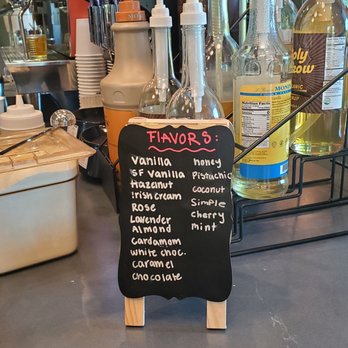 FLAVORS:
Vanilla
SF Vanilla
Hazelnut
Irish Cream
Rose
Lavender
Almond
Cardamom
white choc.
caramel
chocolate
honey
Pistachio
coconut
Simple
cherry
mint
Nutrition Facts